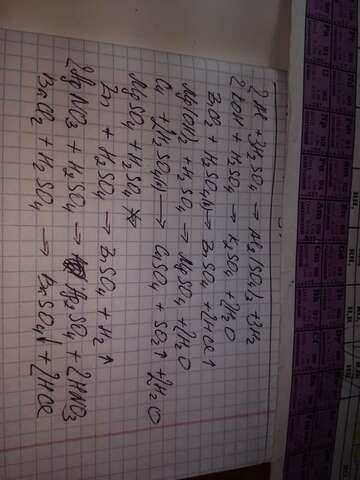 2Al + 3H₂SO₄ → Al₂(SO₄)₃ + 3H₂
2KOH + H₂SO₄ → K₂SO₄ + 2H₂O
ZnCl₂ + H₂SO₄(к) → ZnSO₄ + 2HCl↑
Mg(OH)₂ + H₂SO₄ → MgSO₄ + 2H₂O
Cu + 2H₂SO₄(к) → CuSO₄ + SO₂↑ + 2H₂O
MgSO₄ + H₂SO₄ ↛
Zn + H₂SO₄ → ZnSO₄ + H₂↑
2AgNO₃ + H₂SO₄ → Ag₂SO₄ + 2HNO₃
BaCl₂ + H₂SO₄ → BaSO₄↓ + 2HCl